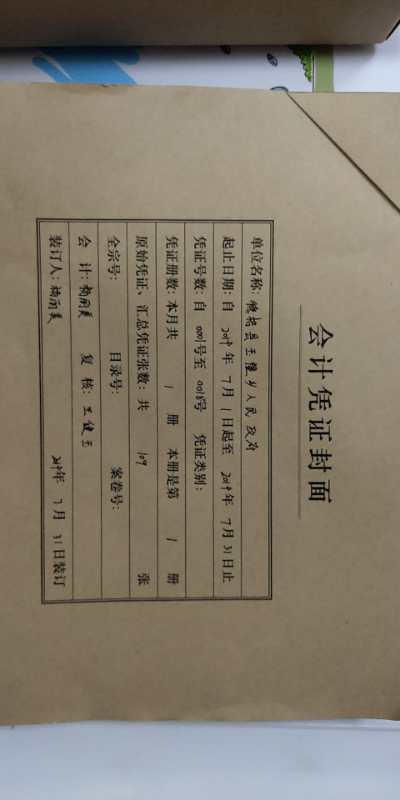 会计凭证封面
单位名称: 县王 乡人民政府
起止日期: 自 2019 年 7 月 1 日起至 2019 年 7 月 31 日止
凭证号数: 自 0001 号至 0018 号 凭证类别:
凭证册数: 本月共 1 册 本册是第 1 册
原始凭证、汇总凭证张数: 共 109 张
全宗号: 目录号: 案卷号:
会 计: 杨丽美 复 核: 王健玉
装订人: 杨丽美 2019年 7 月 31 日装订